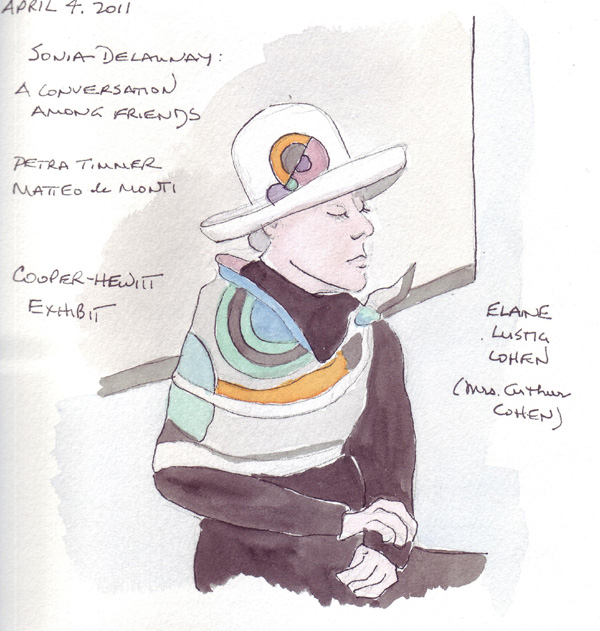 APRIL 4. 2011
SONIA DELAUNAY:
A CONVERSATION
AMONG FRIENDS
PETRA TIMMER
MATTEO de MONTI
COOPER-HEWITT
EXHIBIT
ELAINE
LUSTIG
COHEN
(Mrs. Arthur
COHEN)